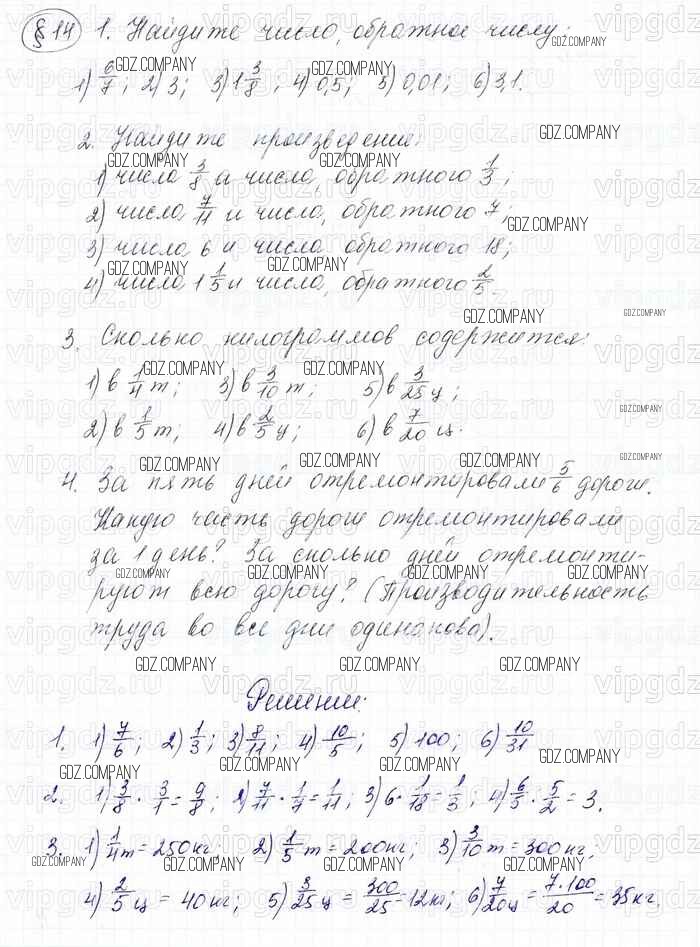 § 14 1. Найдите число, обратное числу:
1) 6/7; 2) 3; 3) 1 3/8; 4) 0,5; 5) 0,01; 6) 3,1.
2. Найдите произведение:
1) числа 3/8 и числа, обратного 1/3;
2) числа 7/11 и числа, обратного 7;
3) числа 6 и числа обратного 18;
4) числа 1 1/5 и числа, обратного 2/5.
3. Сколько килограммов содержится:
1) в 1/4 т; 3) в 3/10 т; 5) в 3/25 ц;
2) в 1/5 т; 4) в 2/5 ц; 6) в 7/20 ц.
4. За пять дней отремонтировали 5/6 дороги.
Какую часть дороги отремонтировали
за 1 день? За сколько дней отремонти-
руют всю дорогу? (Производительность
труда во все дни одинакова).
Решение:
1. 1) 7/6; 2) 1/3; 3) 8/11; 4) 10/5; 5) 100; 6) 10/31
2. 1) 3/8 · 3/1 = 9/8; 2) 7/11 · 1/7 = 1/11; 3) 6 · 1/18 = 1/3; 4) 6/5 · 5/2 = 3.
3. 1) 1/4 т = 250 кг; 2) 1/5 т = 200 кг; 3) 3/10 т = 300 кг;
4) 2/5 ц = 40 кг; 5) 3/25 ц = 300/25 = 12 кг; 6) 7/20 ц = 7·100/20 = 35 кг.
GDZ.COMPANY
vipgdz.ru